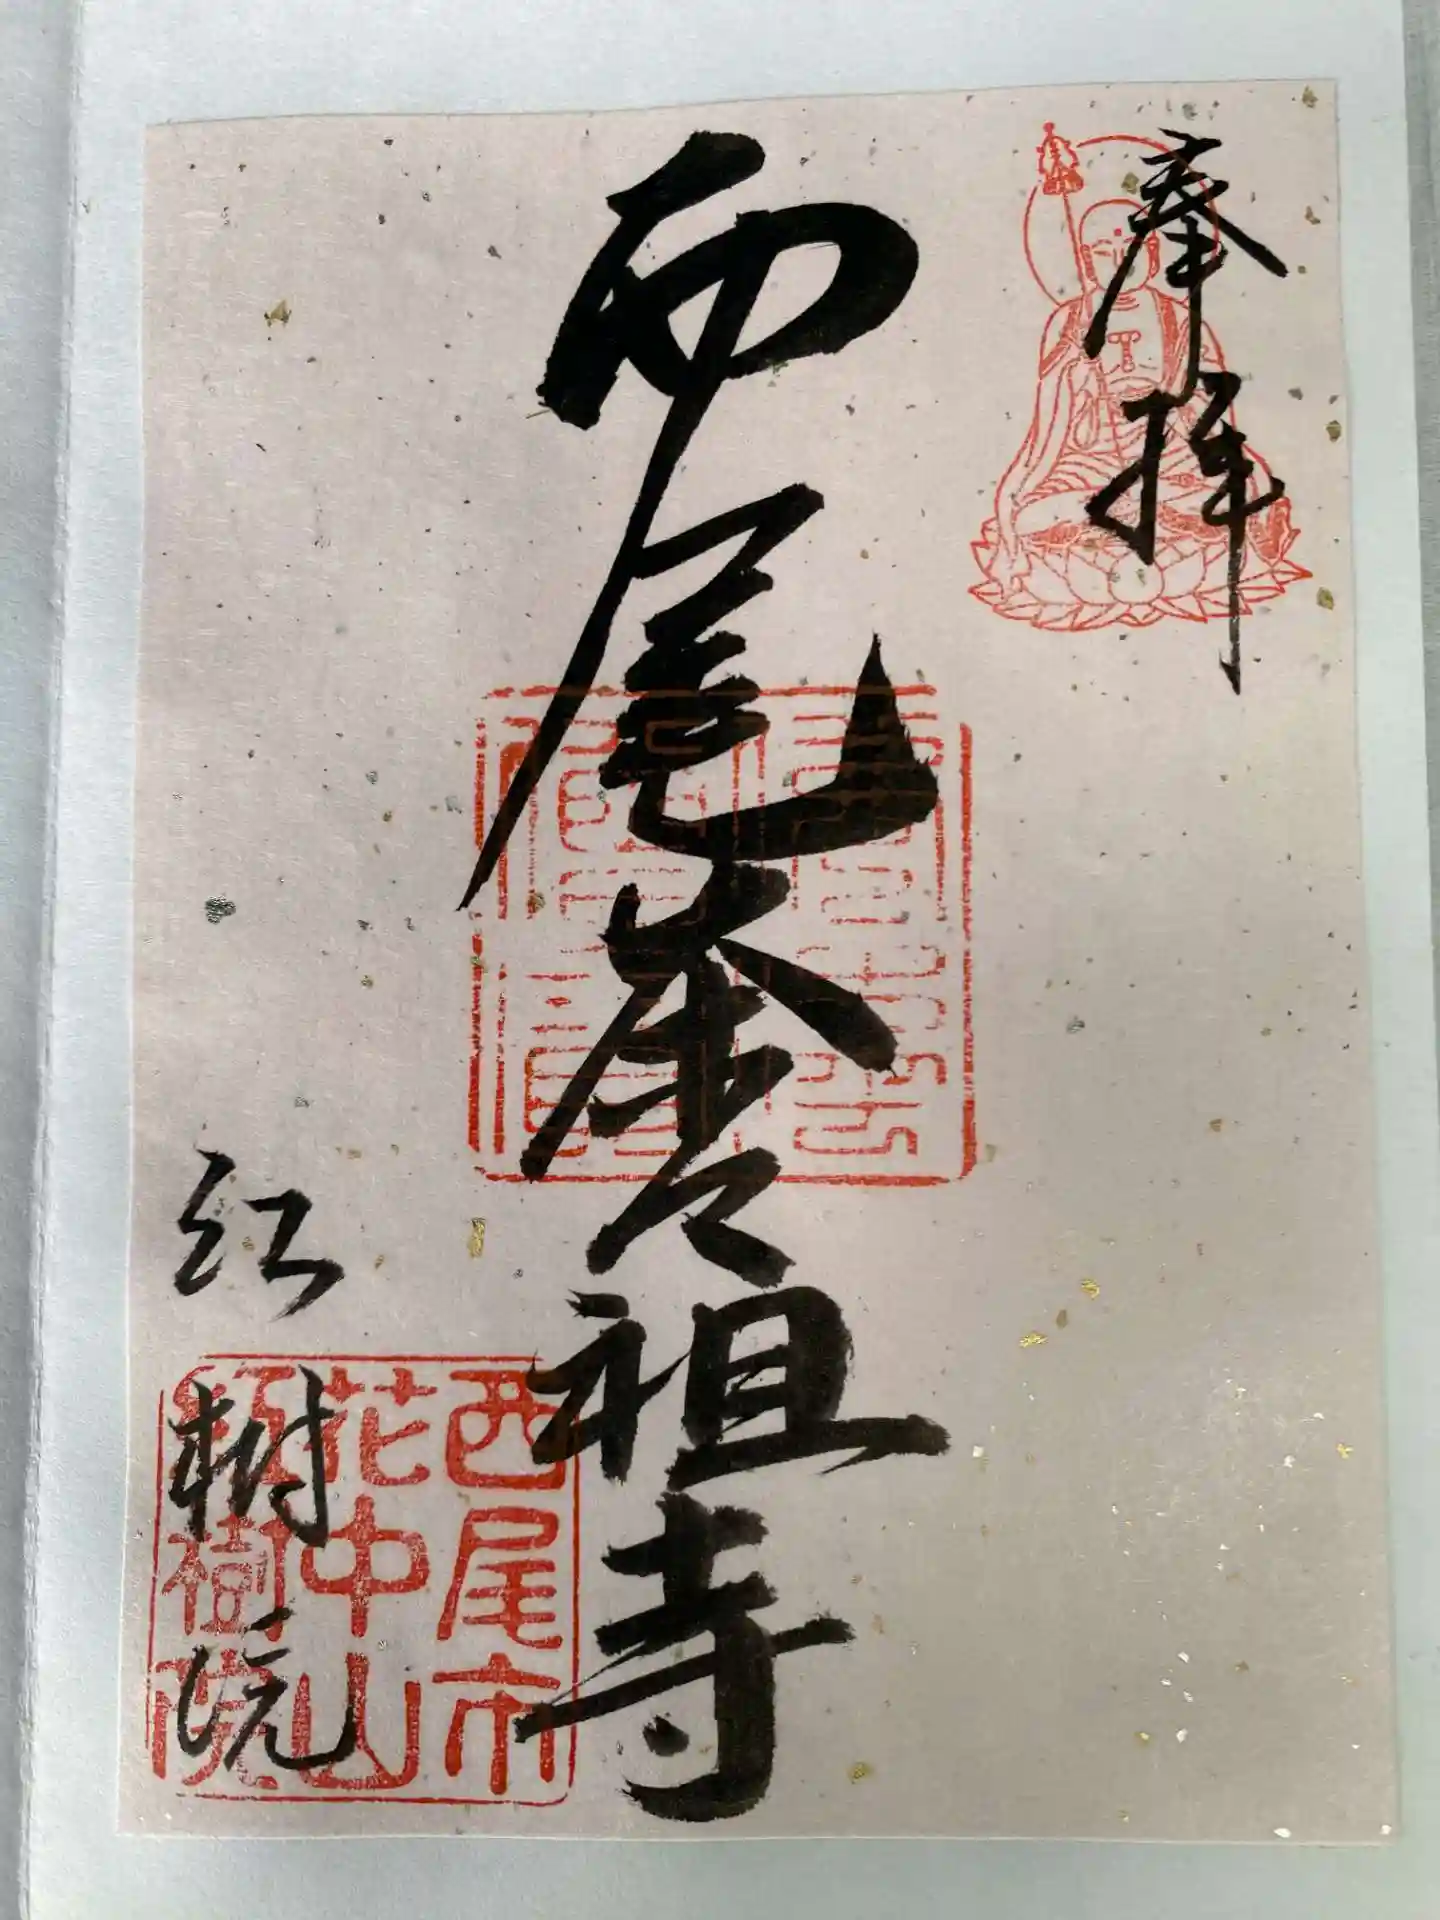 奉拝
西尾茶之祖寺
紅樹院
西尾市
花中山
紅樹院